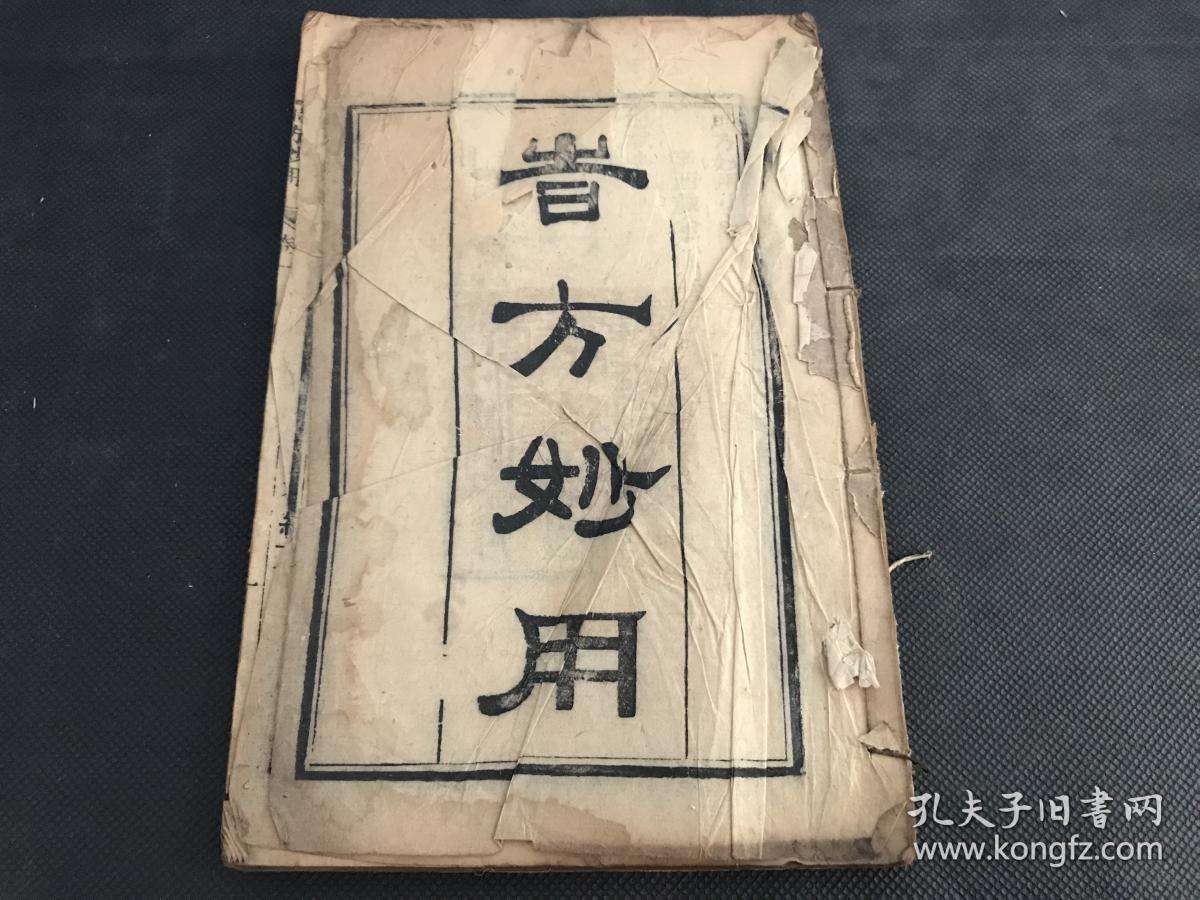 旹方妙用
孔夫子旧書网
www.kongfz.com